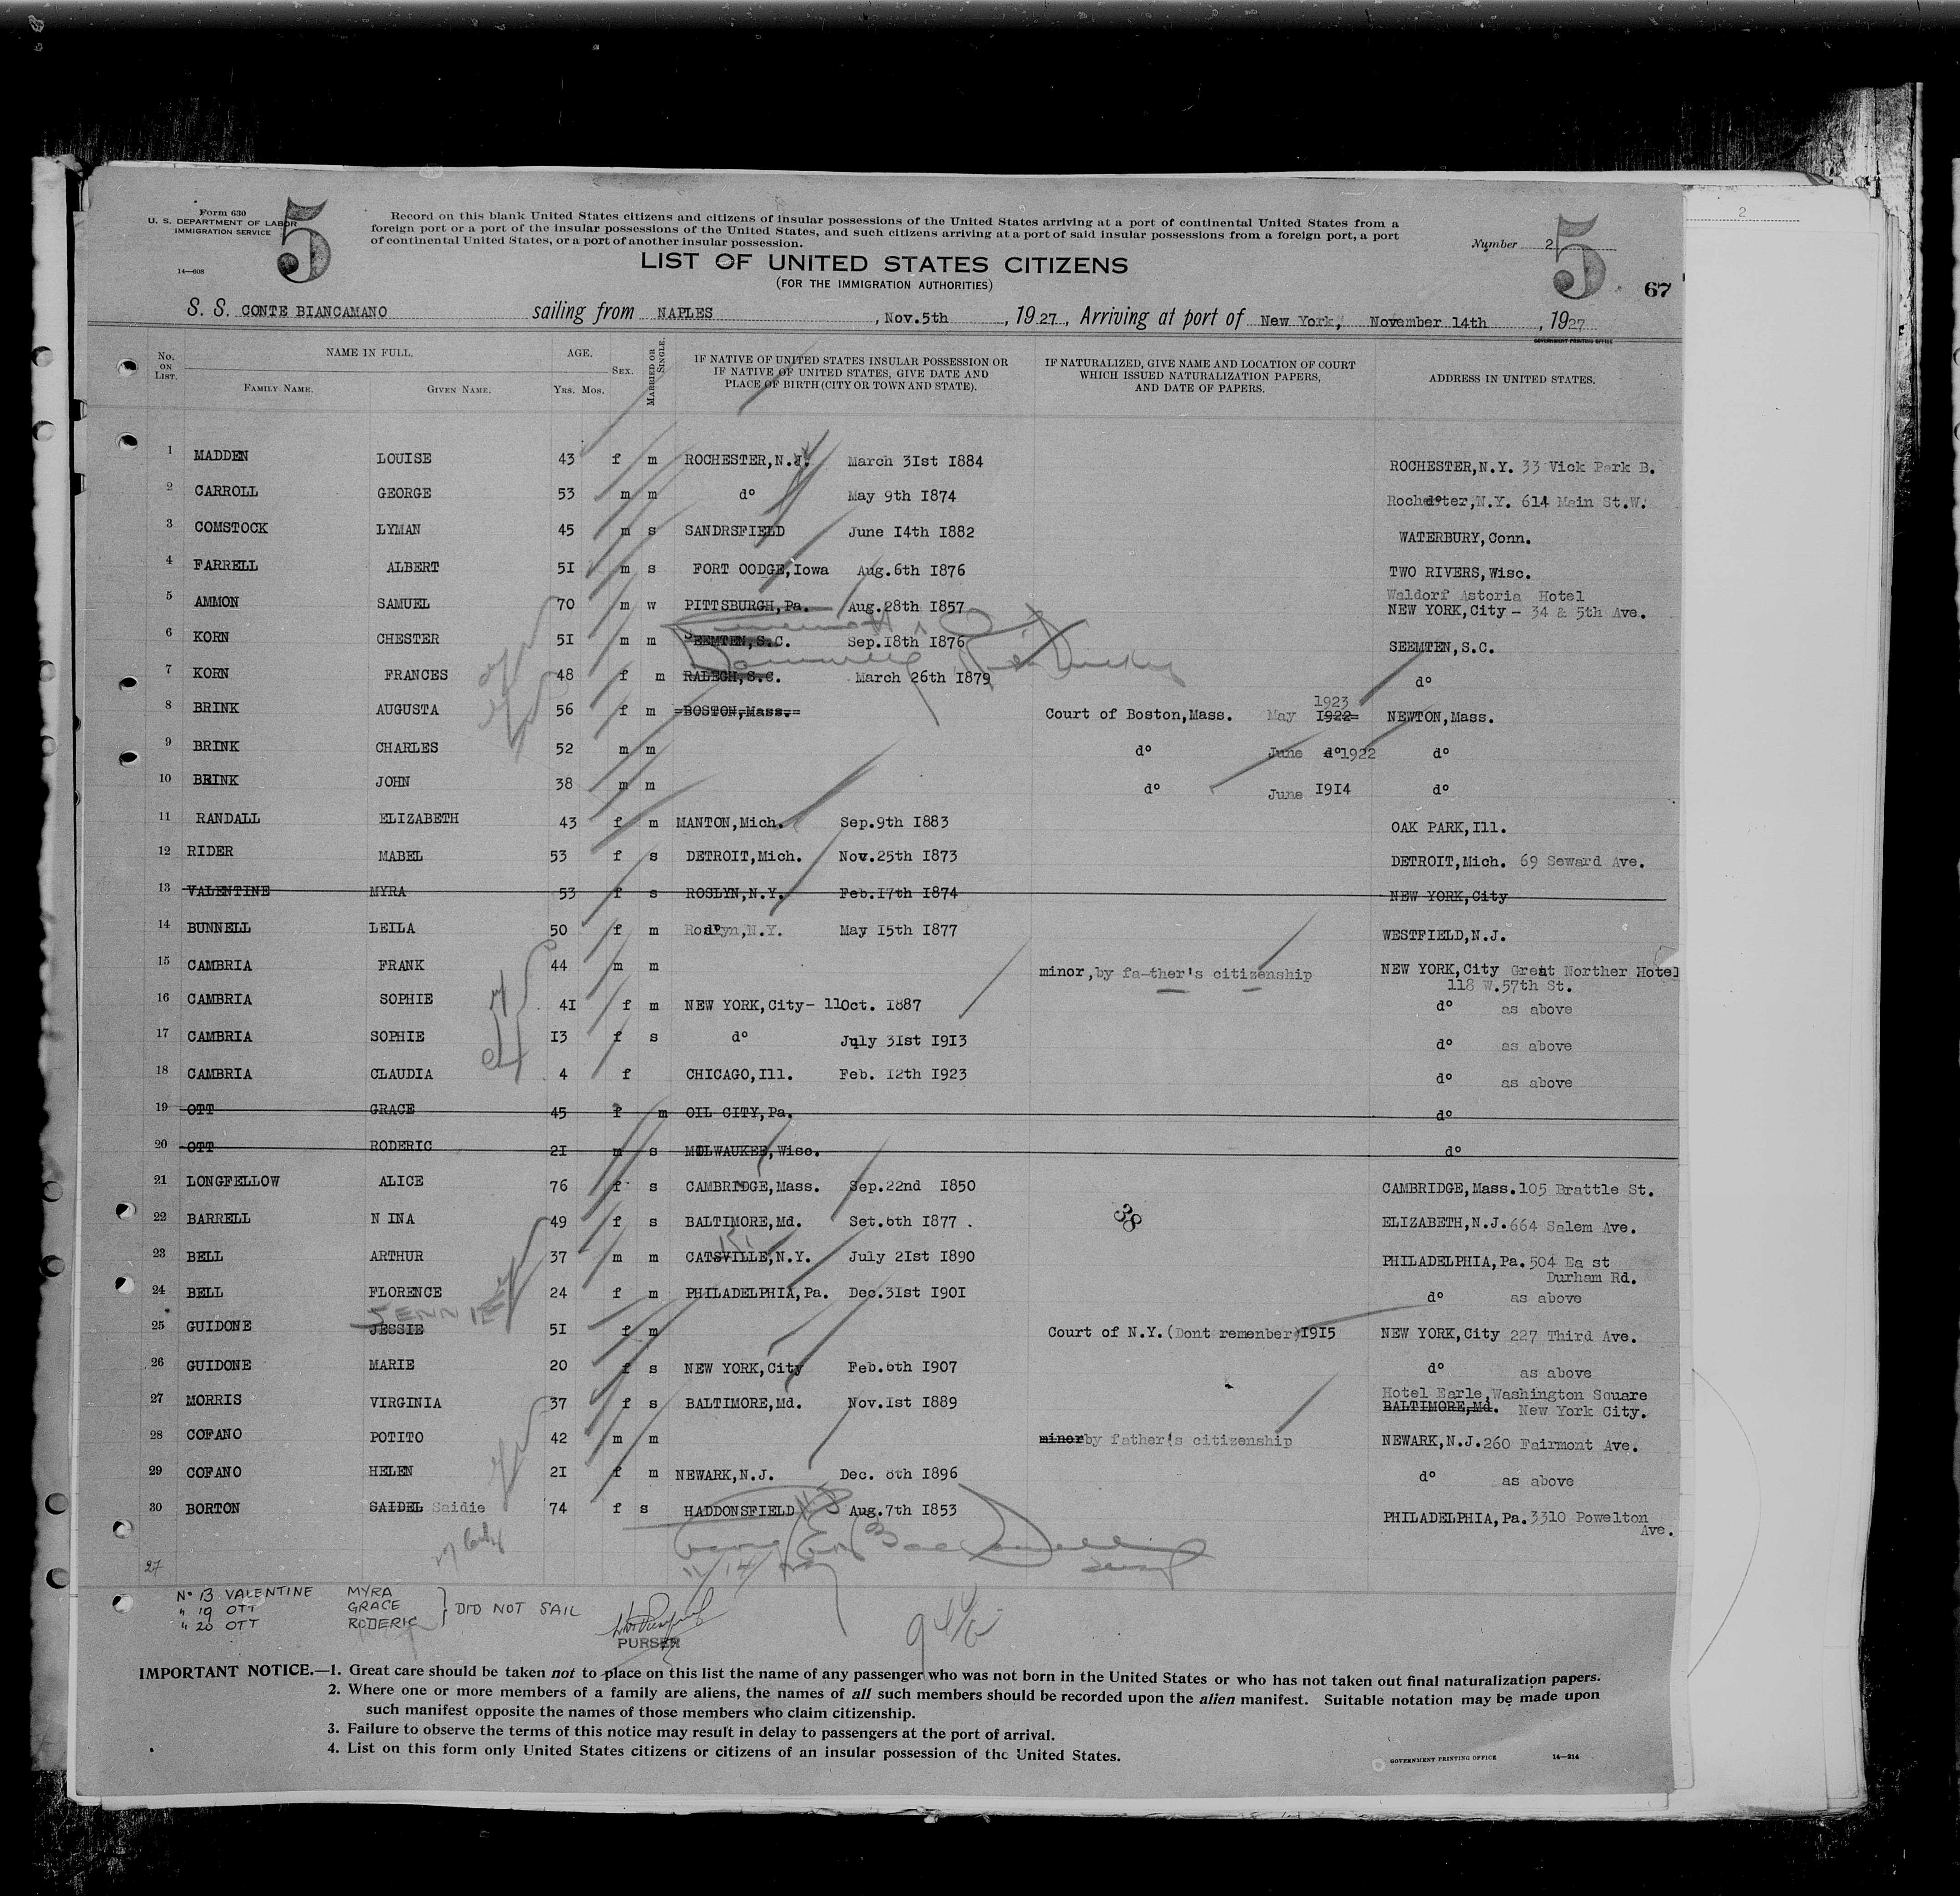 Form 630
U. S. DEPARTMENT OF LABOR
IMMIGRATION SERVICE
14—608
5
Record on this blank United States citizens and citizens of insular possessions of the United States arriving at a port of continental United States from a
foreign port or a port of the insular possessions of the United States, and such citizens arriving at a port of said insular possessions from a foreign port, a port
of continental United States, or a port of another insular possession.
Number 2
5
67
2
LIST OF UNITED STATES CITIZENS
(FOR THE IMMIGRATION AUTHORITIES)
S. S. CONTE BIANCAMANO sailing from NAPLES, Nov.5th, 1927, Arriving at port of New York, November 14th, 1927
GOVERNMENT PRINTING OFFICE
No. ON LIST. NAME IN FULL. FAMILY NAME. GIVEN NAME. AGE. YRS. MOS. SEX. MARRIED OR SINGLE. IF NATIVE OF UNITED STATES INSULAR POSSESSION OR IF NATIVE OF UNITED STATES, GIVE DATE AND PLACE OF BIRTH (CITY OR TOWN AND STATE). IF NATURALIZED, GIVE NAME AND LOCATION OF COURT WHICH ISSUED NATURALIZATION PAPERS, AND DATE OF PAPERS. ADDRESS IN UNITED STATES.
1 MADDEN LOUISE 43 f m ROCHESTER,N.J. March 31st 1884 ROCHESTER,N.Y. 33 Vick Park B.
2 CARROLL GEORGE 53 m m do May 9th 1874 Rochester,N.Y. 614 Main St.W.
3 COMSTOCK LYMAN 45 m s SANDRSFIELD June 14th 1882 WATERBURY,Conn.
4 FARRELL ALBERT 51 m s FORT OODGE,Iowa Aug.6th 1876 TWO RIVERS,Wisc.
5 AMMON SAMUEL 70 m w PITTSBURGH,Pa. Aug.28th 1857 Waldorf Astoria Hotel
NEW YORK,City - 34 & 5th Ave.
6 KORN CHESTER 51 m m SEEMTEN,S.C. Sep.18th 1876 SEEMTEN,S.C.
7 KORN FRANCES 48 f m RALEGH,S.C. March 26th 1879 do
8 BRINK AUGUSTA 56 f m BOSTON,Mass. Court of Boston,Mass. May 1922 1923 NEWTON,Mass.
9 BRINK CHARLES 52 m m do June do 1922 do
10 BRINK JOHN 38 m m do June 1914 do
11 RANDALL ELIZABETH 43 f m MANTON,Mich. Sep.9th 1883 OAK PARK,Ill.
12 RIDER MABEL 53 f s DETROIT,Mich. Nov.25th 1873 DETROIT,Mich. 69 Seward Ave.
13 VALENTINE MYRA 53 f s ROSLYN,N.Y. Feb.17th 1874 NEW YORK,City
14 BUNNELL LEILA 50 f m Roslyn,N.Y. May 15th 1877 WESTFIELD,N.J.
15 CAMBRIA FRANK 44 m m minor,by fa-ther's citizenship NEW YORK,City Great Norther Hotel
118 W.57th St.
16 CAMBRIA SOPHIE 41 f m NEW YORK,City- 11 Oct. 1887 do as above
17 CAMBRIA SOPHIE 13 f s do July 31st 1913 do as above
18 CAMBRIA CLAUDIA 4 f CHICAGO,Ill. Feb. 12th 1923 do as above
19 OTT GRACE 45 f m OIL CITY,Pa. do
20 OTT RODERIC 21 m s MILWAUKEE,Wisc. do
21 LONGFELLOW ALICE 76 f s CAMBRIDGE,Mass. Sep.22nd 1850 CAMBRIDGE,Mass.105 Brattle St.
22 BARRELL N INA 49 f s BALTIMORE,Md. Set.6th 1877 . 38 ELIZABETH,N.J.664 Salem Ave.
23 BELL ARTHUR 37 m m CATSVILLE,N.Y. July 21st 1890 PHILADELPHIA,Pa.504 Ea st
Durham Rd.
24 BELL FLORENCE 24 f m PHILADELPHIA,Pa. Dec.31st 1901 do as above
JENNIE
25 GUIDONE JESSIE 51 f m Court of N.Y.(Dont remenber)1915 NEW YORK,City 227 Third Ave.
26 GUIDONE MARIE 20 f s NEW YORK,City Feb.6th 1907 do as above
27 MORRIS VIRGINIA 37 f s BALTIMORE,Md. Nov.1st 1889 Hotel Earle,Washington Square
BALTIMORE,Md. New York City.
28 COFANO POTITO 42 m m minor by father's citizenship NEWARK,N.J.260 Fairmont Ave.
29 COFANO HELEN 21 f m NEWARK,N.J. Dec. 8th 1896 do as above
30 BORTON SAIDEL Saidie 74 f s HADDONSFIELD NJ Aug.7th 1853 PHILADELPHIA,Pa.3310 Powelton
Ave.
27
No 13 VALENTINE MYRA
" 19 OTT GRACE } DID NOT SAIL
" 20 OTT RODERIC
PURSER
IMPORTANT NOTICE.—1. Great care should be taken not to place on this list the name of any passenger who was not born in the United States or who has not taken out final naturalization papers.
2. Where one or more members of a family are aliens, the names of all such members should be recorded upon the alien manifest. Suitable notation may be made upon
such manifest opposite the names of those members who claim citizenship.
3. Failure to observe the terms of this notice may result in delay to passengers at the port of arrival.
4. List on this form only United States citizens or citizens of an insular possession of the United States.
GOVERNMENT PRINTING OFFICE 14—214